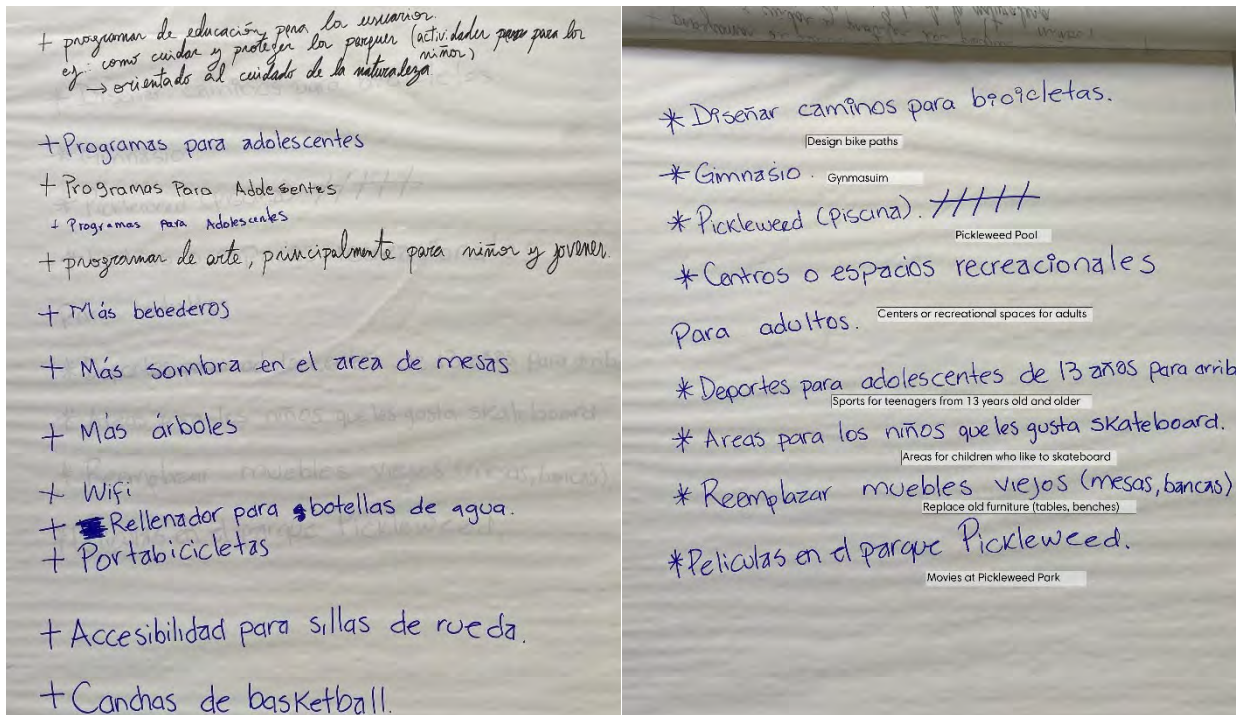 + programas de educación para los usuarios.
ej: como cuidar y proteger los parques (actividades para para los
niños)
→ orientado al cuidado de la naturaleza
+ Programas para adolescentes
+ Programas Para Adolesentes
+ Programas Para Adolescentes
+ programas de arte, principalmente para niños y jovenes.
+ Más bebederos
+ Más sombra en el area de mesas
+ Más árboles
+ Wifi
+ Rellenador para botellas de agua.
+ Portabicicletas
+ Accesibilidad para sillas de rueda.
+ Canchas de basketball.
* Diseñar caminos para bicicletas.
Design bike paths
* Gimnasio.
Gynmasuim
* Pickleweed (Piscina).
Pickleweed Pool
* Centros o espacios recreacionales
Para adultos.
Centers or recreational spaces for adults
* Deportes para adolescentes de 13 años para arrib
Sports for teenagers from 13 years old and older
* Areas para los niños que les gusta skateboard.
Areas for children who like to skateboard
* Reemplazar muebles viejos (mesas, bancas)
Replace old furniture (tables, benches)
* Peliculas en el parque Pickleweed.
Movies at Pickleweed Park